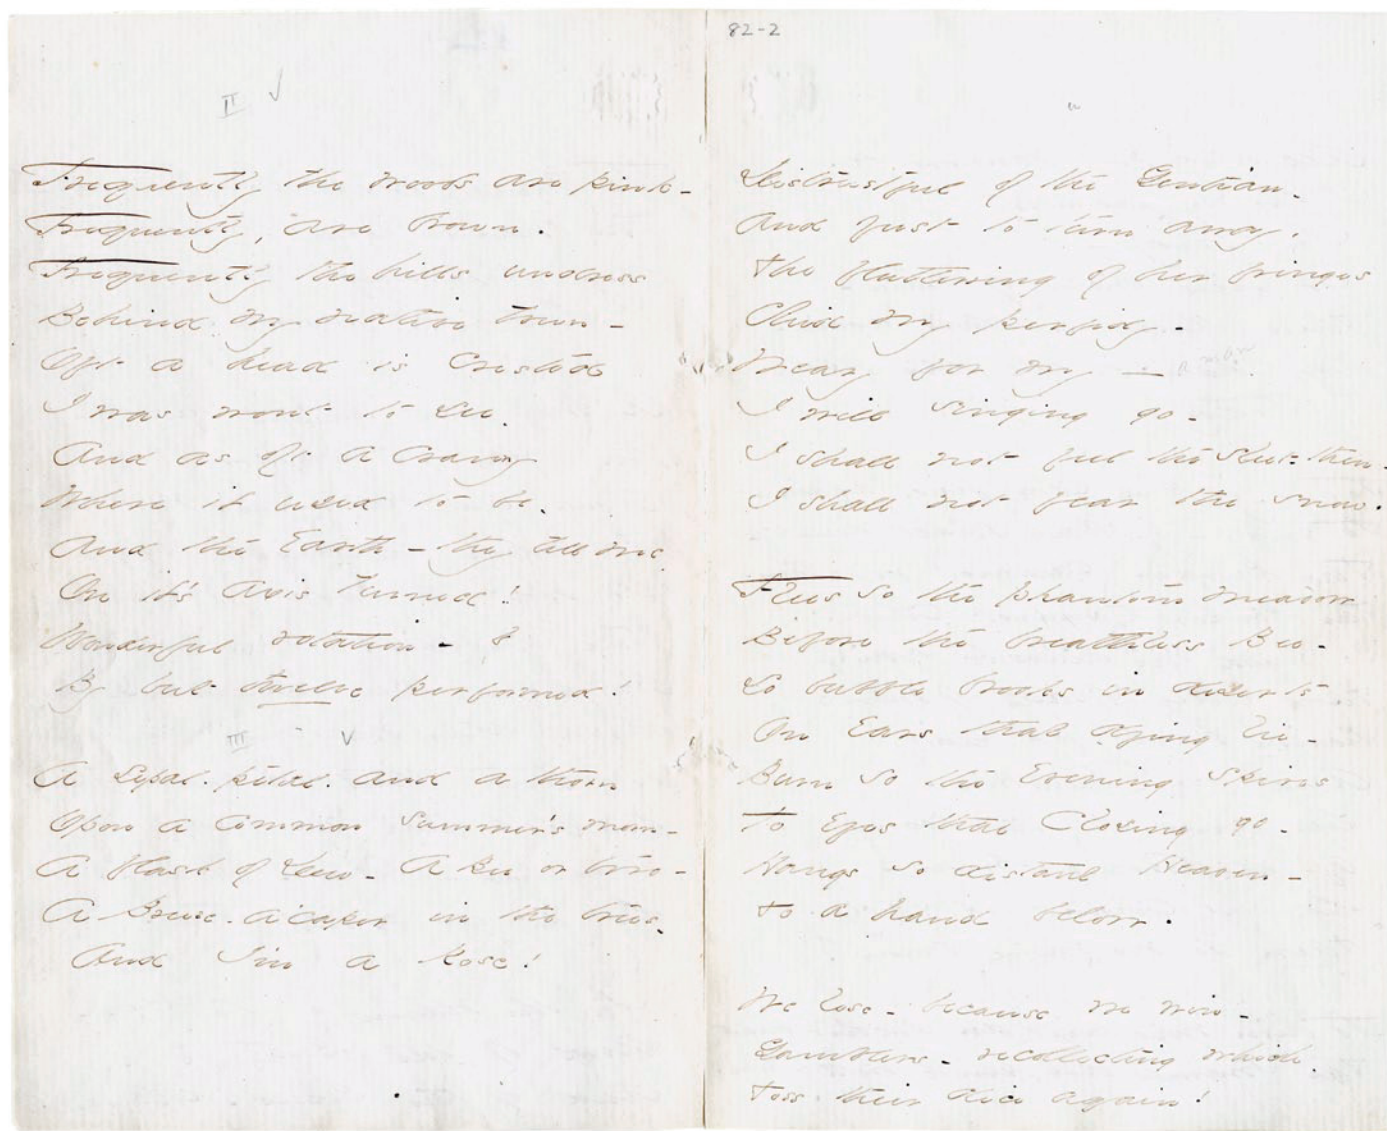 II ✓
Frequently the woods are pink -
Frequently, are brown.
Frequently the hills undress
Behind my native town -
Oft a head is crested
I was wont to see,
And as oft a cranny
Where it used to be.
And the Earth - they tell me
On it's Axis turned!
Wonderful rotation -
By but twelve performed!
III ✓
A sepal. petal. and a thorn
Upon a common summer's morn -
A flask of Dew - A Bee or two -
A Breeze. a'caper in the trees,
And I'm a Rose!
82-2
Distrustful of the Gentian.
And just to turn away,
The fluttering of her fringes
Chid my perfidy -
Weary for my —
I will singing go -
I shall not feel the sleet - then -
I shall not fear the snow.
Flees so the phantom meadow
Before the breathless Bee -
So bubble brooks in deserts
On Ears that dying lie -
Burn so the Evening Spires
To Eyes that Closing go -
Hangs so distant Heaven -
To a hand below.
We lose - because we win -
Gamblers - recollecting which
Toss their dice again!